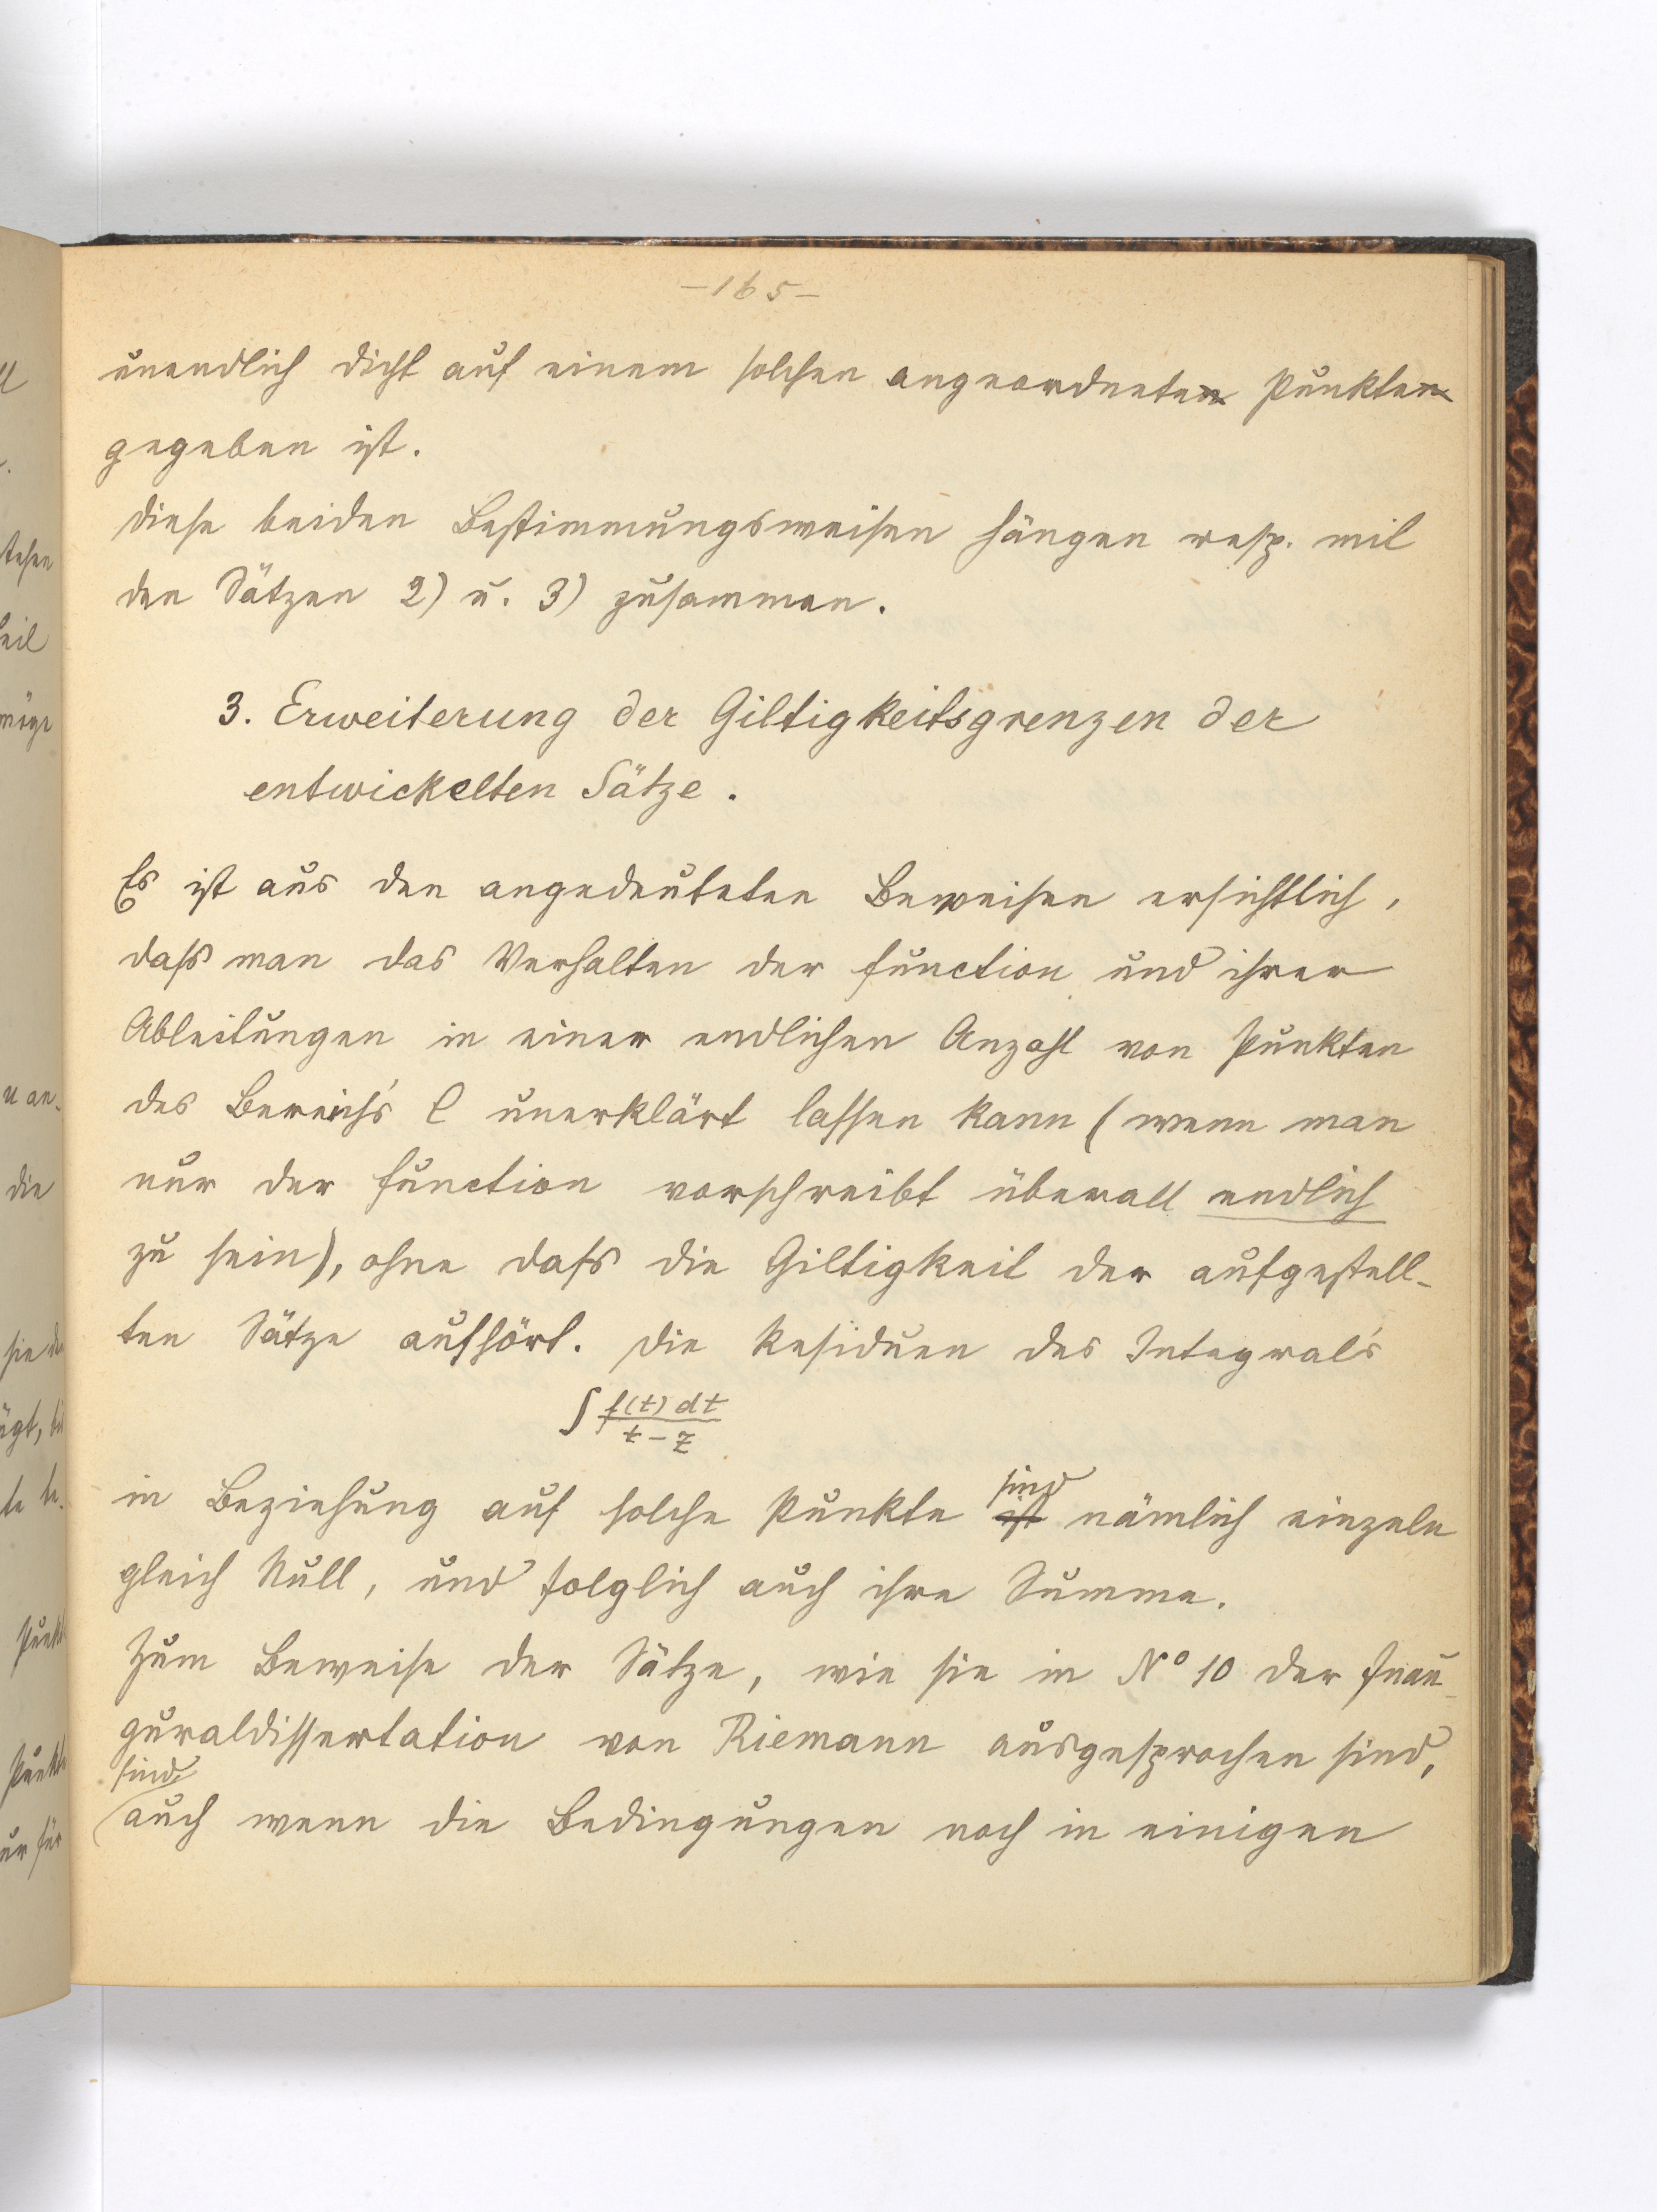 –165–
unendlich dicht auf einem solchen angeordneten Punkten
gegeben ist.
Diese beiden Bestimmungsweisen hängen resp. mit
den Sätzen 2) u. 3) zusammen.
3. Erweiterung der Giltigkeitsgrenzen der
entwickelten Sätze.
Es ist aus den angedeuteten Beweisen ersichtlich,
dass man das Verhalten der Function und ihrer
Ableitungen in einer endlichen Anzahl von Punkten
des Bereich's C unerklärt lassen kann (wenn man
nur der Function vorschreibt überall endlich
zu sein), ohne dass die Giltigkeit der aufgestell-
ten Sätze aufhört. Die Residuen des Integral's
∫ f(t) dt / t – z
in Beziehung auf solche Punkte ist sind nämlich einzeln
gleich Null, und folglich auch ihre Summe.
Zum Beweise der Sätze, wie sie in N° 10 der Inau-
guraldissertation von Riemann ausgesprochen sind,
sind
auch wenn die Bedingungen noch in einigen